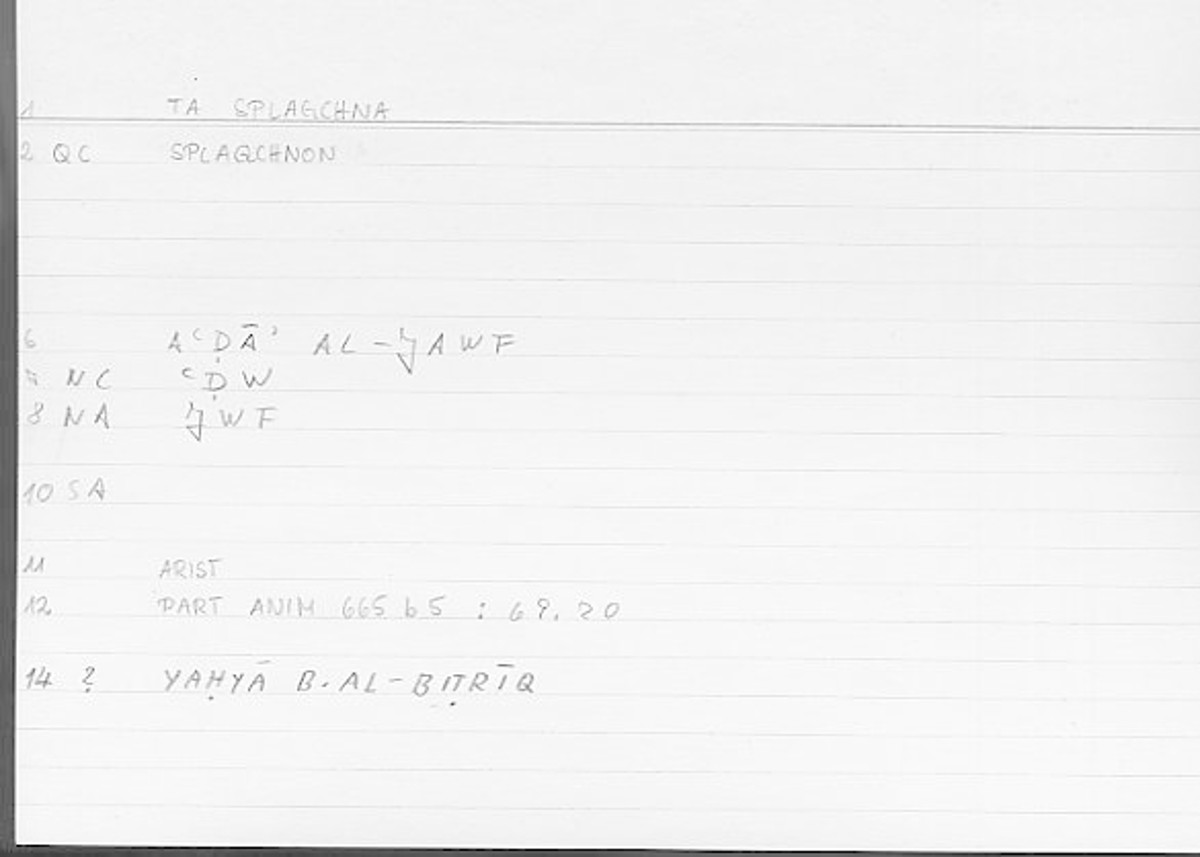 1 TA SPLAGCHNA
2 QC SPLAGCHNON
6 AʿḌĀʾ AL-ǦAWF
7 NC ʿḌW
8 NA ǦWF
10 SA
11 ARIST
12 PART ANIM 665 b 5 : 69.20
14 ? YAḤYĀ B. AL-BIṬRĪQ